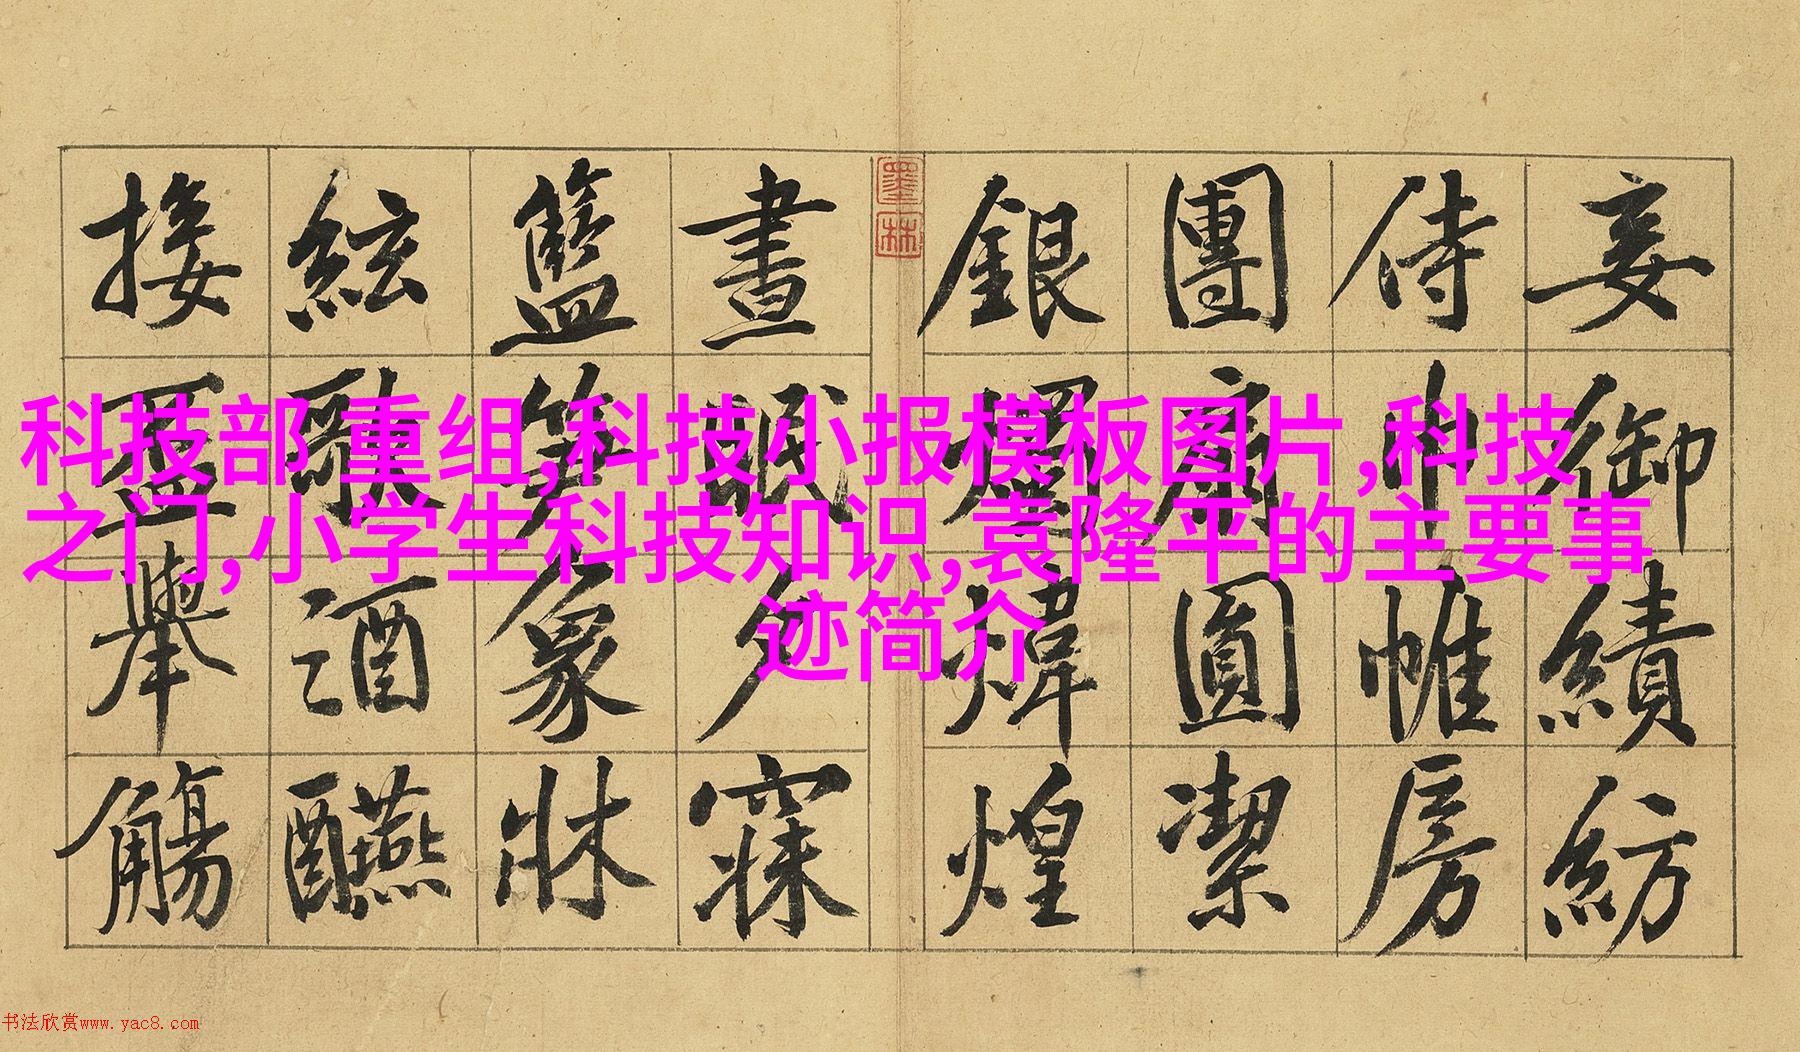 妾御績紡
侍巾帷房
團扇圓潔
銀燭煒煌
墨林
晝眠夕寐
籃笋象牀
絃歌酒醼
接盃舉觴
科技部 重组,科技小报模板图片,科技
之门,小学生科技知识,袁隆平的主要事
迹简介
书法欣赏www.yac8.com